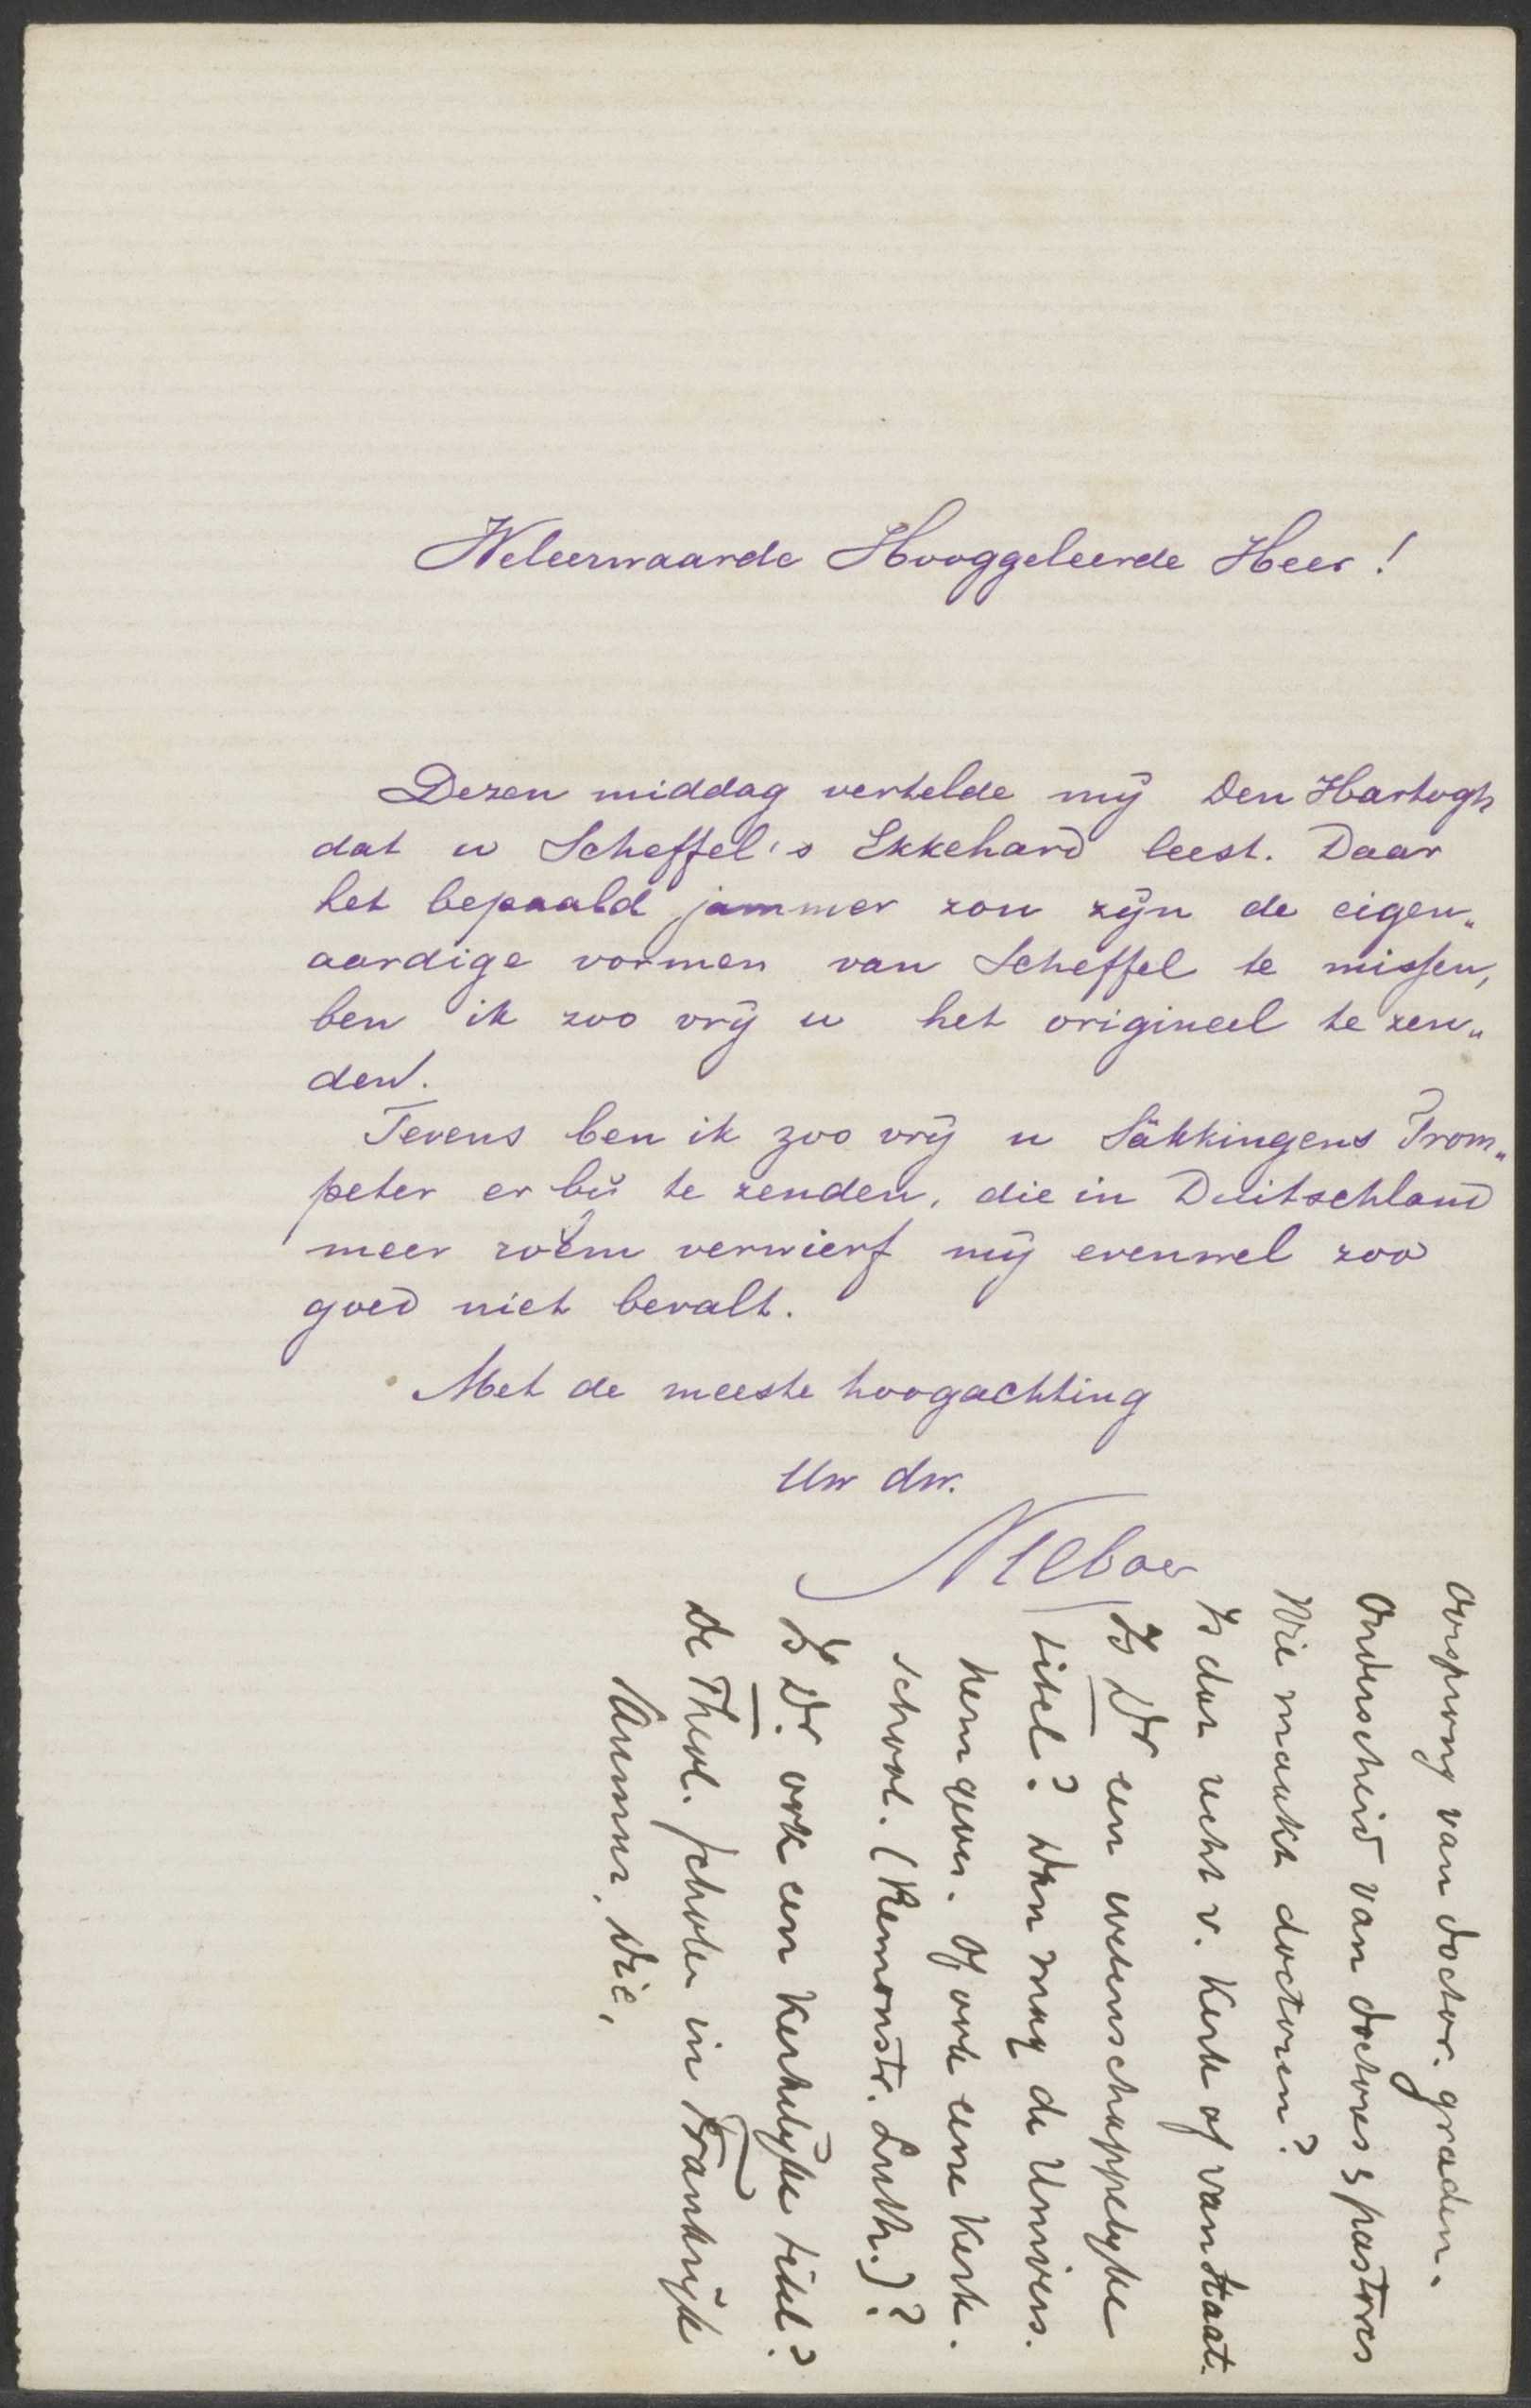 Weleerwaarde Hooggeleerde Heer!
Dezen middag vertelde mij Den Hartogh
dat u Scheffel's Ekkehard leest. Daar
het bepaald jammer zou zijn de eigen„
aardige vormen van Scheffel te missen,
ben ik zoo vrij u het origineel te zen„
den.
Tevens ben ik zoo vrij u Säkkingens Trom„
peter er bij te zenden, die in Duitschland
meer roem verwierf mij evenwel zoo
goed niet bevalt.
Met de meeste hoogachting
Uw dw.
Nieboer
Oorsprong van doctor. graden.
Onderscheid van doctores & pastores
Wie maakt doctoren?
Is dat recht v. Kerk of van Staat.
Is Dr een wetenschappelyke
titel? Dan mag de Univers.
hem geven. Of ook eene Kerk.
school. (Remonstr. Luth.)?
Is Dr. ook een Kerkelyke titel?
de Theol. scholen in Frankrijk
die,